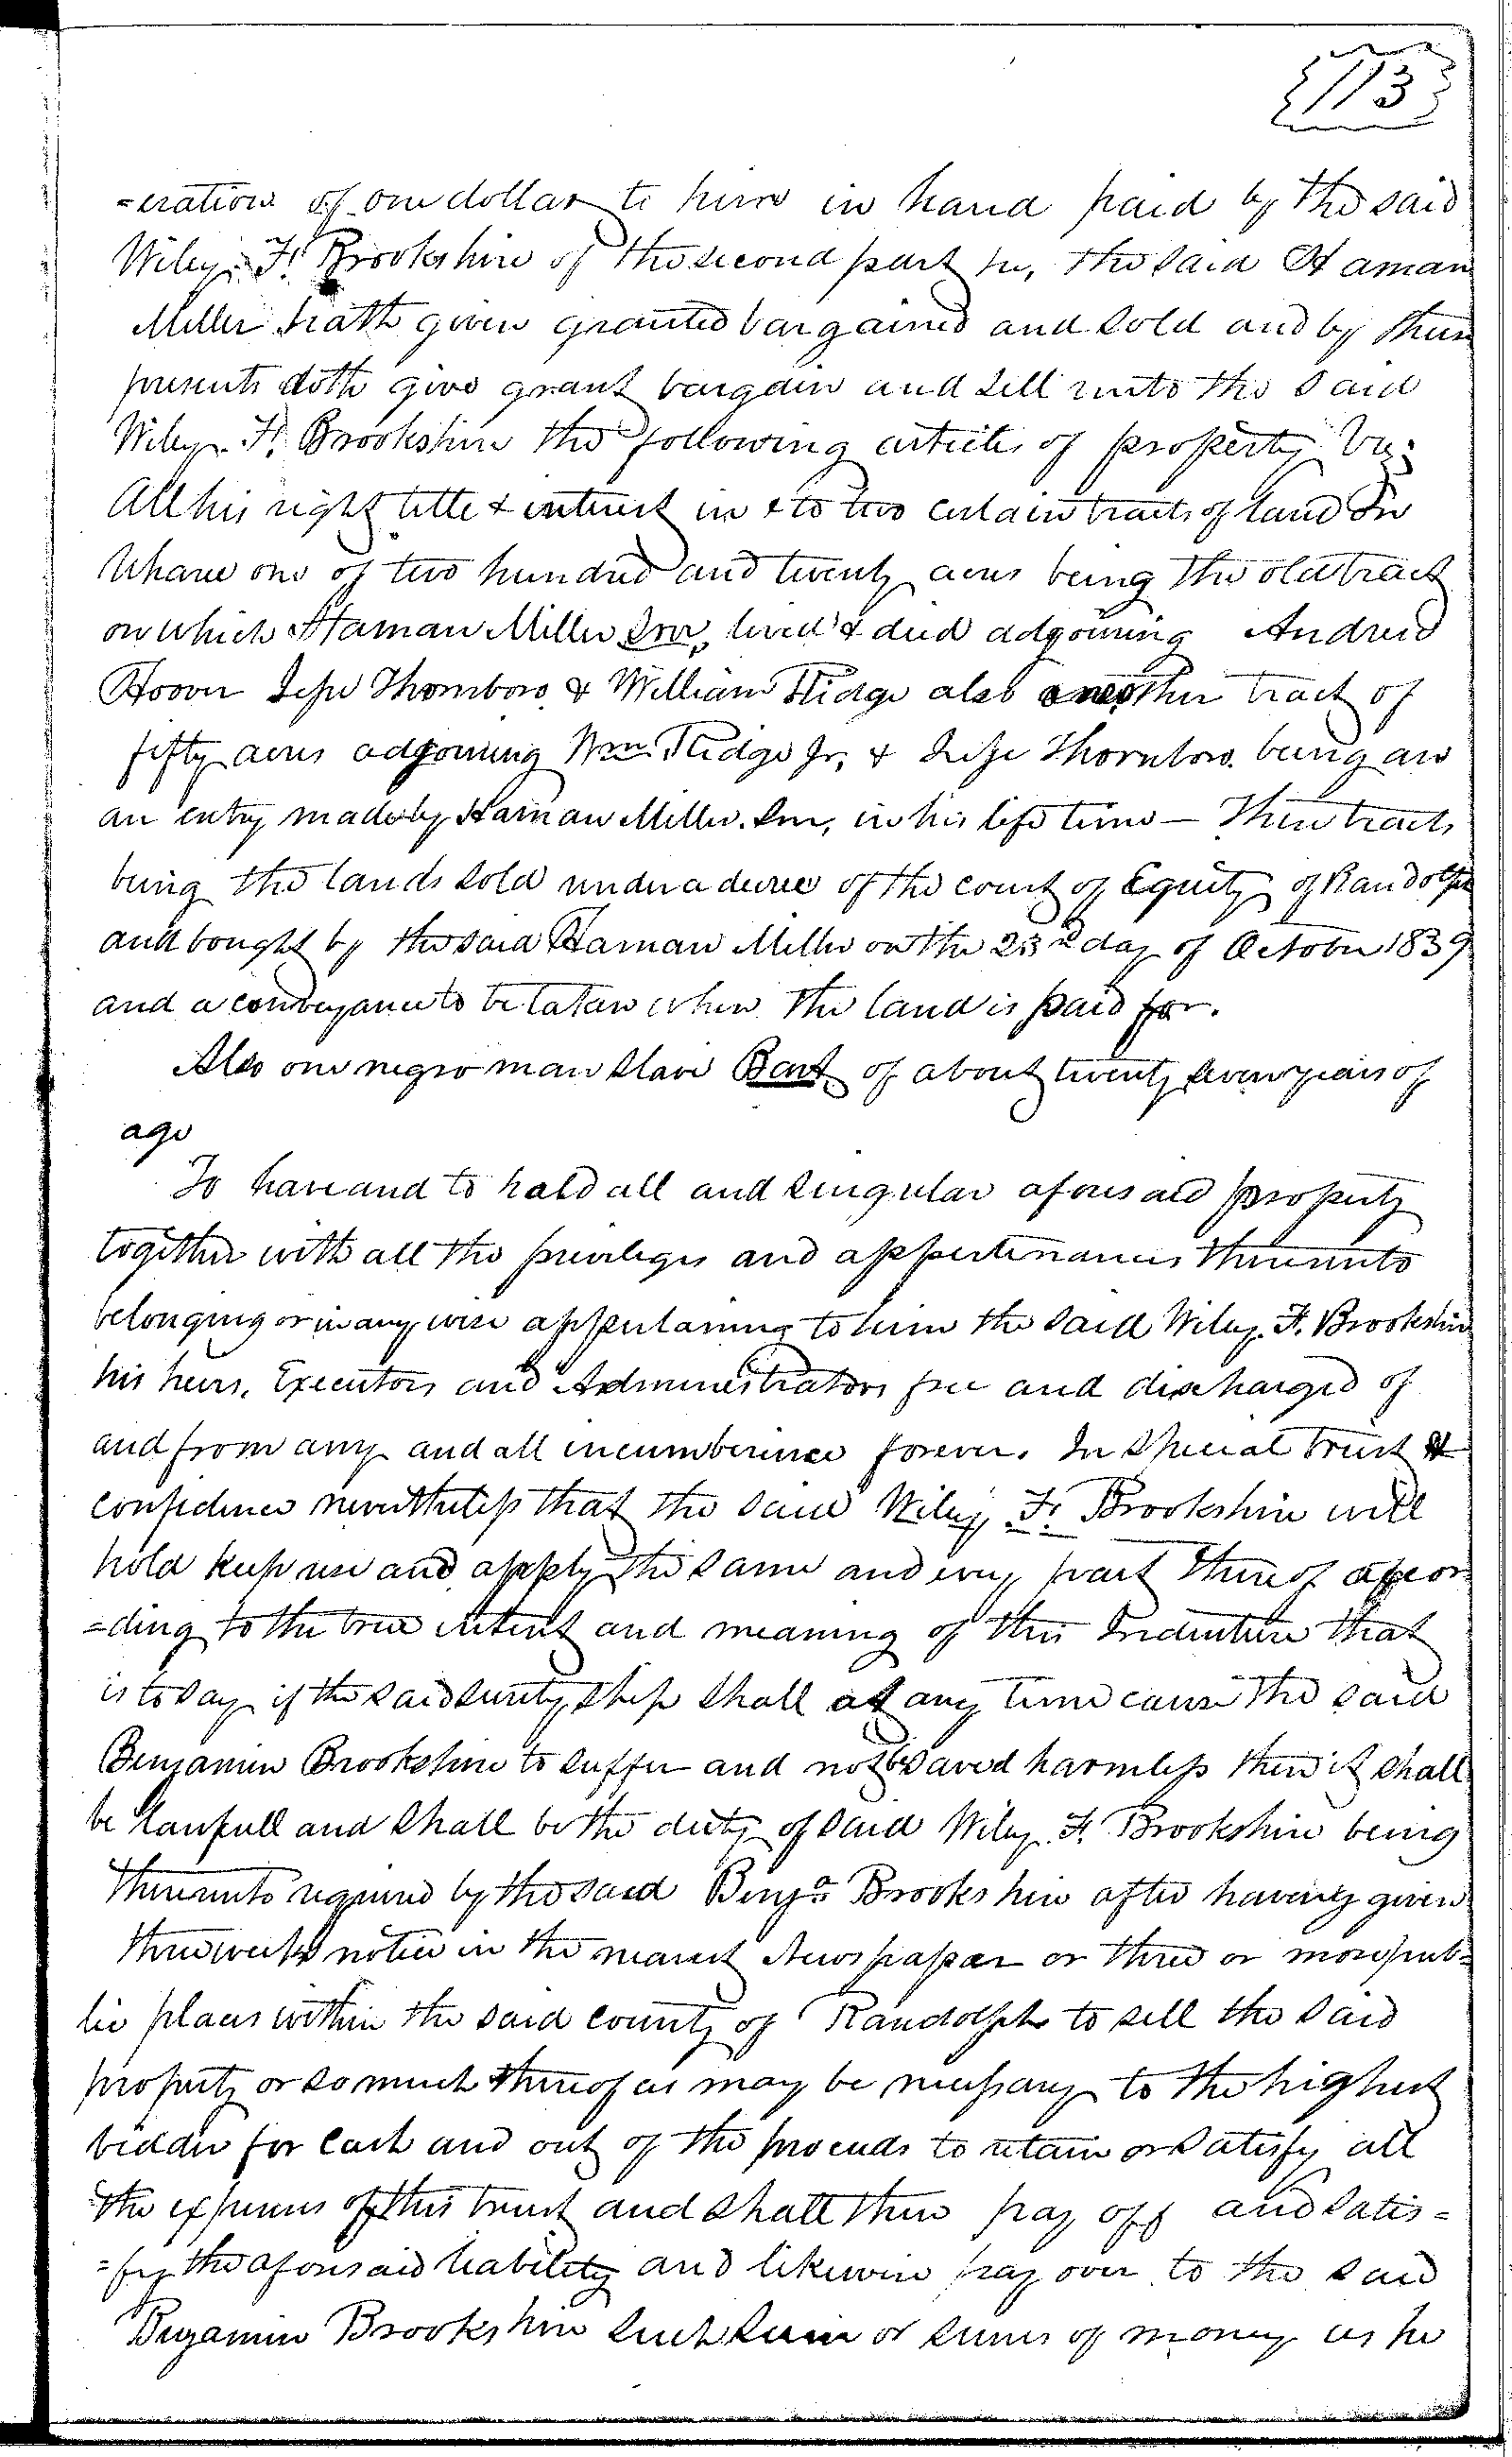 113
=eration of one dollar to him in hand paid by the said
Wiley F. Brookshire of the second part he, the said Haman
Miller hath given granted bargained and sold and by these
presents doth give grant bargain and sell unto the said
Wiley F. Brookshire the following articles of property Viz:
All his right title & interest in & to two certain tracts of land on
Uharie one of two hundred and twenty acres being the old tract
on which Haman Miller Snr, lived & died adjoining Andrew
Hoover Jesse Thornton & William Ridge also another tract of
fifty acres adjoining Wm Ridge Jr, & Jesse Thornton being an
an entry made by Haman Miller Snr, in his life time — These tracts
being the lands sold under a decree of the court of Equity of Randolph
and bought by the said Haman Miller on the 23rd day of October 1839
and a conveyance to be taken when the land is paid for.
Also one negro man slave Bart of about twenty seven years of
age
To have and to hold all and singular aforesaid property
together with all the privileges and appertenances thereunto
belonging or in any wise appertaining to him the said Wiley F. Brookshire
his heirs, Executors and Administrators free and discharged of
and from any and all incumberence forever. In special trust &
confidence nevertheless that the said Wiley F. Brookshire will
hold keep use and apply the same and every part thereof accor
=ding to the true intent and meaning of this Indenture that
is to say if the said surety ship shall at any time cause the said
Benjamin Brookshire to suffer and not be saved harmless then it shall
be lawfull and shall be the duty of said Wiley F. Brookshire being
thereunto required by the said Benja Brookshire after having given
three weeks notice in the nearest Newspapar or three or more pub=
lic places within the said county of Randolph to sell the said
property or so much thereof as may be necessary to the highest
bidder for Cash and out of the proceeds to retain or satisfy all
the expenses of this trust and shall then pay off and satis=
=fy the aforesaid liability and likewise pay over to the said
Benjamin Brookshire such sum or sums of money as he